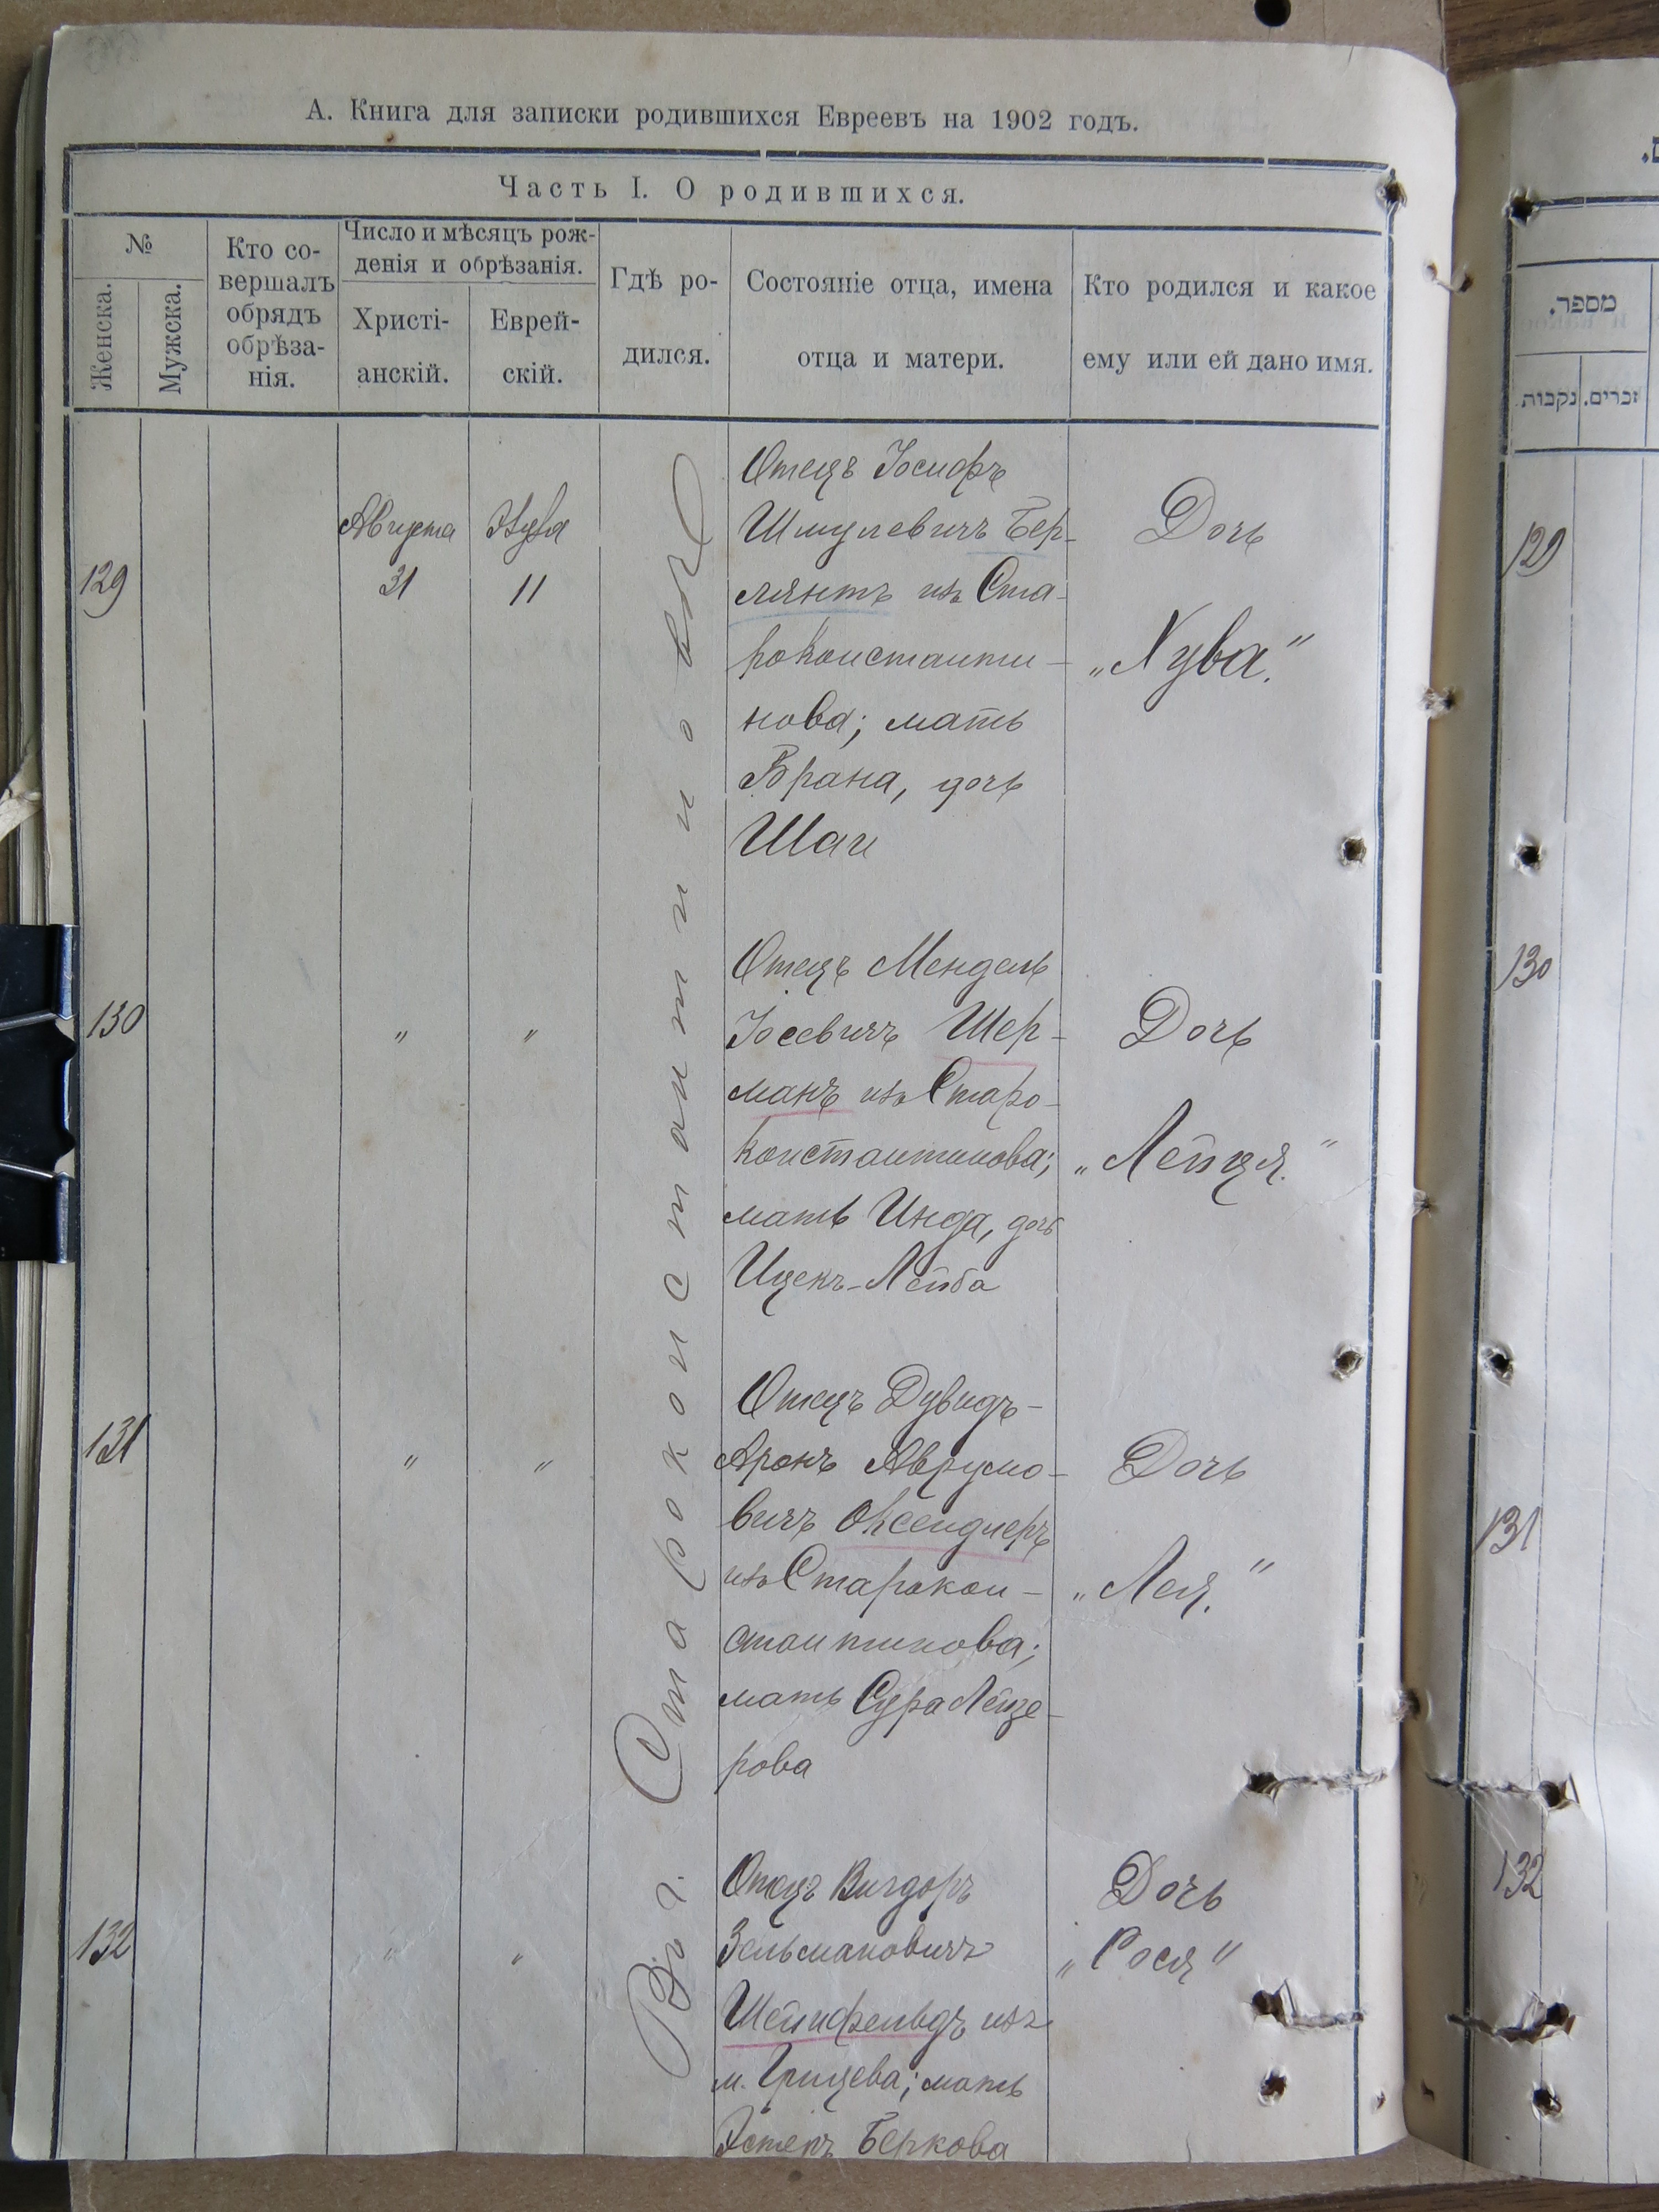 А. Книга для записки родившихся Евреевъ на 1902 годъ.
Часть I. О родившихся.
№
Женска.
Мужска.
Кто со-
вершалъ
обрядъ
обрѣза-
нія.
Число и мѣсяцъ рож-
денія и обрѣзанія.
Христі-
анскій.
Еврей-
скій.
Гдѣ ро-
дился.
Состояніе отца, имена
отца и матери.
Кто родился и какое
ему или ей дано имя.
Въ г. Староконстантиновѣ
129
Августа
31
11
Отецъ Іосифъ
Шмулевичъ Бер-
лянтъ изъ Ста-
роконстанти-
нова; мать
Брана, дочь
Шаи
Дочь
„Хува."
130
"
"
Отецъ Мендель
Іосевичъ Шер-
манъ изъ Старо-
константинова;
мать Инда, дочь
Ицекъ-Лейба
Дочь
„Лейця."
131
"
"
Отецъ Дувидъ-
Аронъ Аврумо-
вичъ Оксендлеръ
изъ Старокон-
стантинова;
мать Сура Лейзе-
рова
Дочь
„Лея."
132
"
"
Отецъ Вигдоръ
Зельмановичъ
Шейнфельдъ изъ
м. Грицева; мать
Эстеръ Беркова
Дочь
„Рося"
מספר.
נקבות.
זכרים.
129
130
131
132